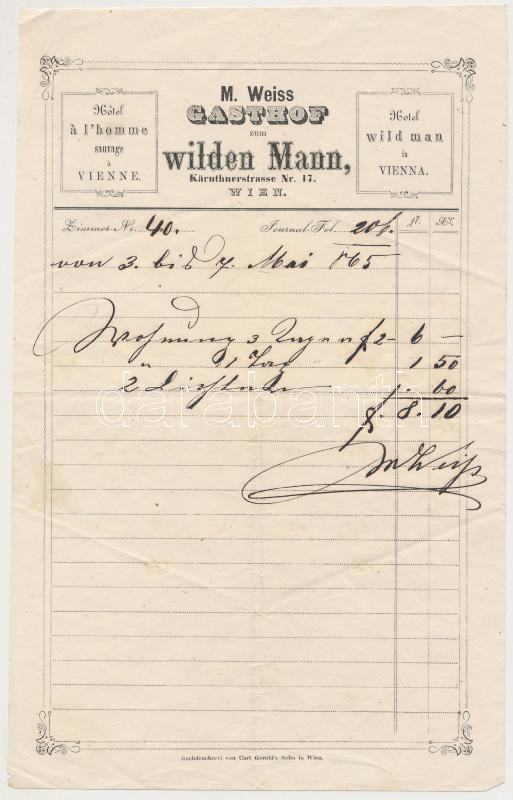 M. Weiss
GASTHOF
zum
wilden Mann,
Kärnthnerstrasse Nr. 17.
WIEN.
Hôtel
à l'homme
sauvage
à
VIENNE.
Hotel
wild man
in
VIENNA.
Zimmer-Nr. 40. Journal-Fol. 206. fl. Xr.
von 3. bis 7. Mai 865
Wohnung 3 Tagen f 2 - 6 -
" 1 Tag 1 50
2 60
f. 8. 10
M Weiß
darabanth
Buchdruckerei von Carl Gerold's Sohn in Wien.